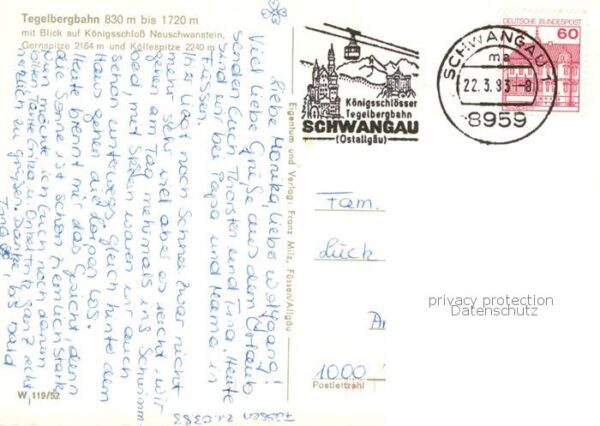 Tegelbergbahn 830 m bis 1720 m
mit Blick auf Königsschloß Neuschwanstein,
Gernspitze 2164 m und Köllespitze 2240 m
Liebe Monika, liebe Wolfgang!
Viel liebe Grüße aus dem Urlaub
senden Euch Thorsten und Tina. Heute
sind wir bei Papa und Mama in
Füssen.
Hier liegt noch Schnee zwar nicht
mehr sehr viel aber es reicht, wir
gehen am Tag mehrmals ins Schwimm
bad mit Skiern waren wir auch
schon unterwegs gleich hinter dem
Haus gehen die los.
Heute brennt mir das Gesicht, denn
die Sonne ist schon ziemlich stark.
Nun möchte ich Euch noch darum
bitten Tante und Onkel Fritz ganz herz-
lich zu grüßen. Danke, bis bald
Tina
Füssen 21.03.83
W 119/52
Eigentum und Verlag: Franz Milz, Füssen/Allgäu
Königsschlösser
Tegelbergbahn
SCHWANGAU
(Ostallgäu)
SCHWANGAU 1
ma
22.3.83-8
8959
DEUTSCHE BUNDESPOST
60
Fam.
Lück
1000
Postleitzahl
privacy protection
Datenschutz